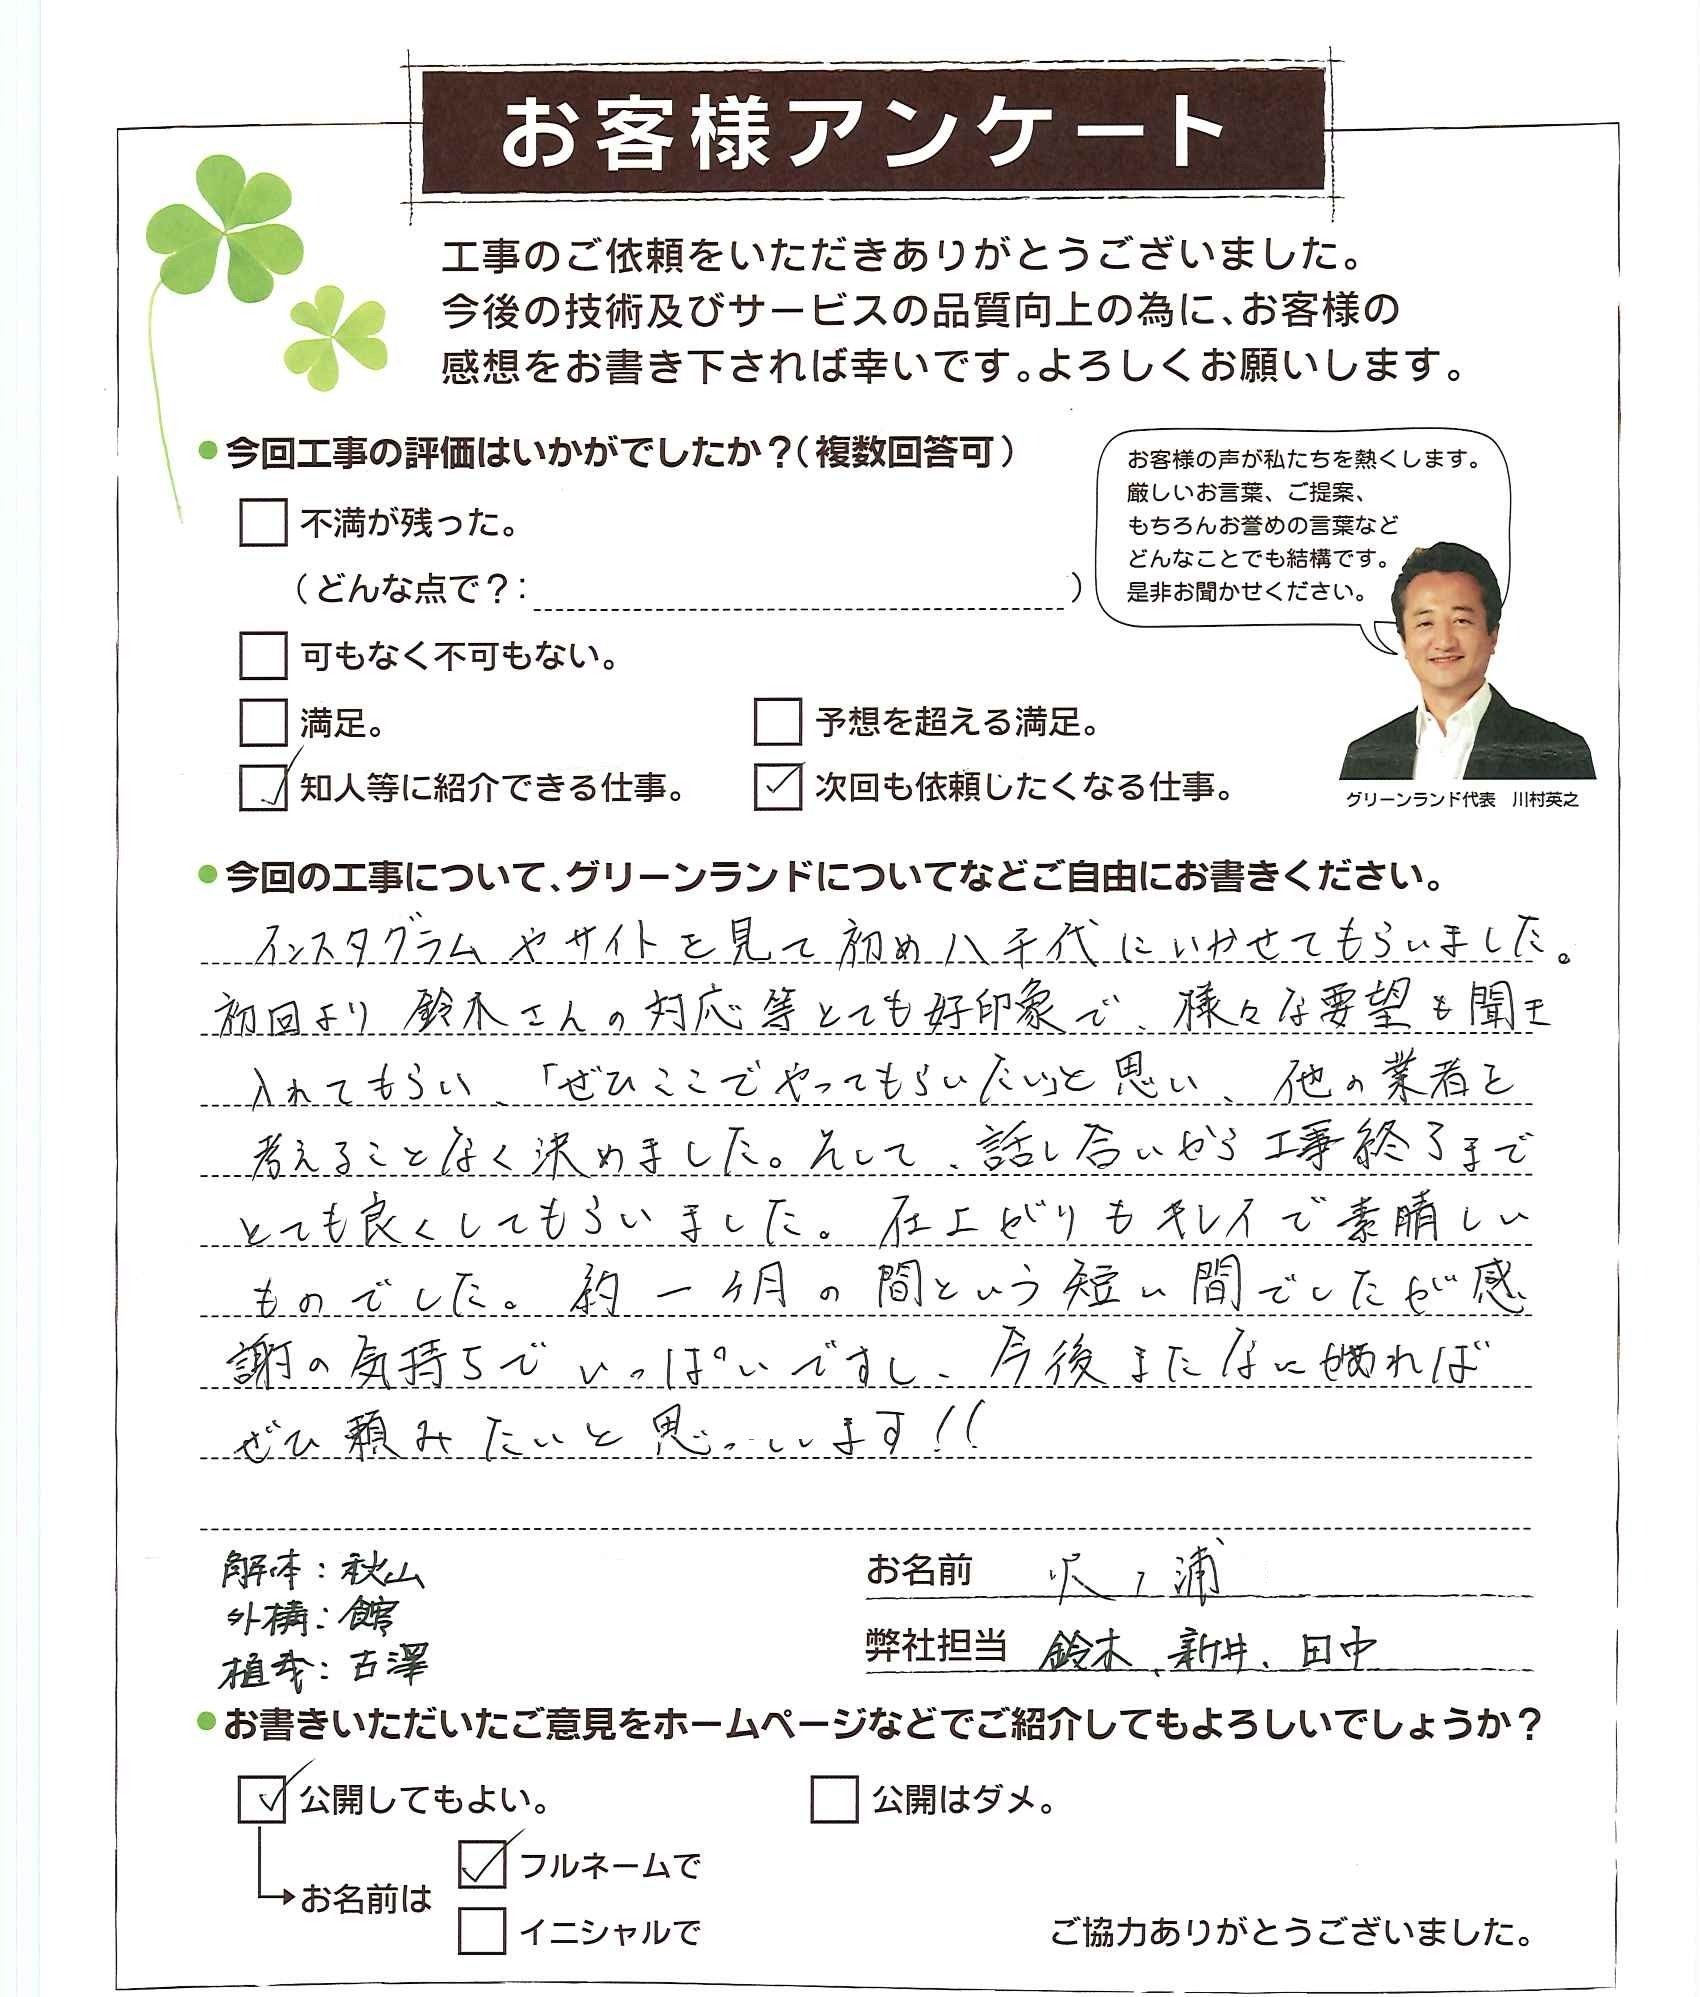 お客様アンケート
工事のご依頼をいただきありがとうございました。
今後の技術及びサービスの品質向上の為に、お客様の
感想をお書き下されば幸いです。よろしくお願いします。
今回工事の評価はいかがでしたか？（複数回答可）
不満が残った。
（どんな点で？： ）
可もなく不可もない。
満足。
予想を超える満足。
知人等に紹介できる仕事。
次回も依頼したくなる仕事。
お客様の声が私たちを熱くします。
厳しいお言葉、ご提案、
もちろんお誉めの言葉など
どんなことでも結構です。
是非お聞かせください。
グリーンランド代表　川村英之
今回の工事について、グリーンランドについてなどご自由にお書きください。
インスタグラムやサイトを見て初め八千代にいかせてもらいました。
初回より鈴木さんの対応等とても好印象で、様々な要望も聞き
入れてもらい、「ぜひここでやってもらいたい」と思い、他の業者を
考えることなく決めました。そして、話し合いから工事終了まで
とても良くしてもらいました。仕上がりもキレイで素晴しい
ものでした。約一ヶ月の間という短い間でしたが感
謝の気持ちでいっぱいですし、今後またなにかあれば
ぜひ頼みたいと思っています!!
解体：秋山
外構：館
植栽：古澤
お名前 沢ノ浦
弊社担当 鈴木、新井、田中
お書きいただいたご意見をホームページなどでご紹介してもよろしいでしょうか？
公開してもよい。
公開はダメ。
お名前は
フルネームで
イニシャルで
ご協力ありがとうございました。